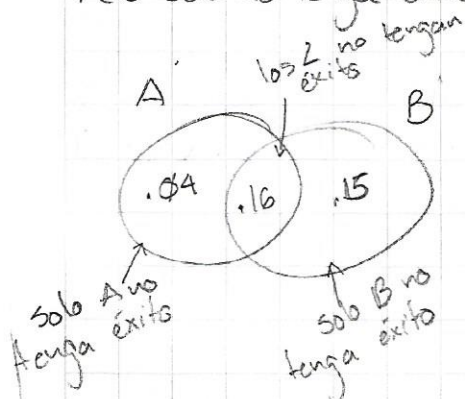 los 2 no tengan
éxito
A'
B'
.04
.16
.15
solo A no
tenga éxito
solo B no
tenga éxito